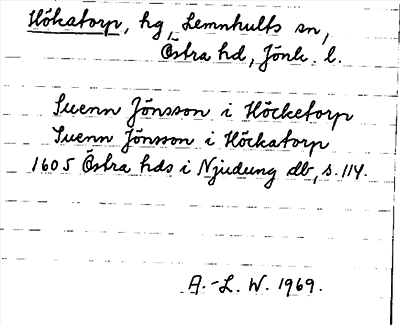 Hökatorp, hg, Lemnhults sn,
Östra hd, Jönk. l.
Suenn Jönsson i Höcketorp
Suenn Jönsson i Höckatorp
1605 Östra hds i Njudung db, s. 114.
A.-L. W. 1969.